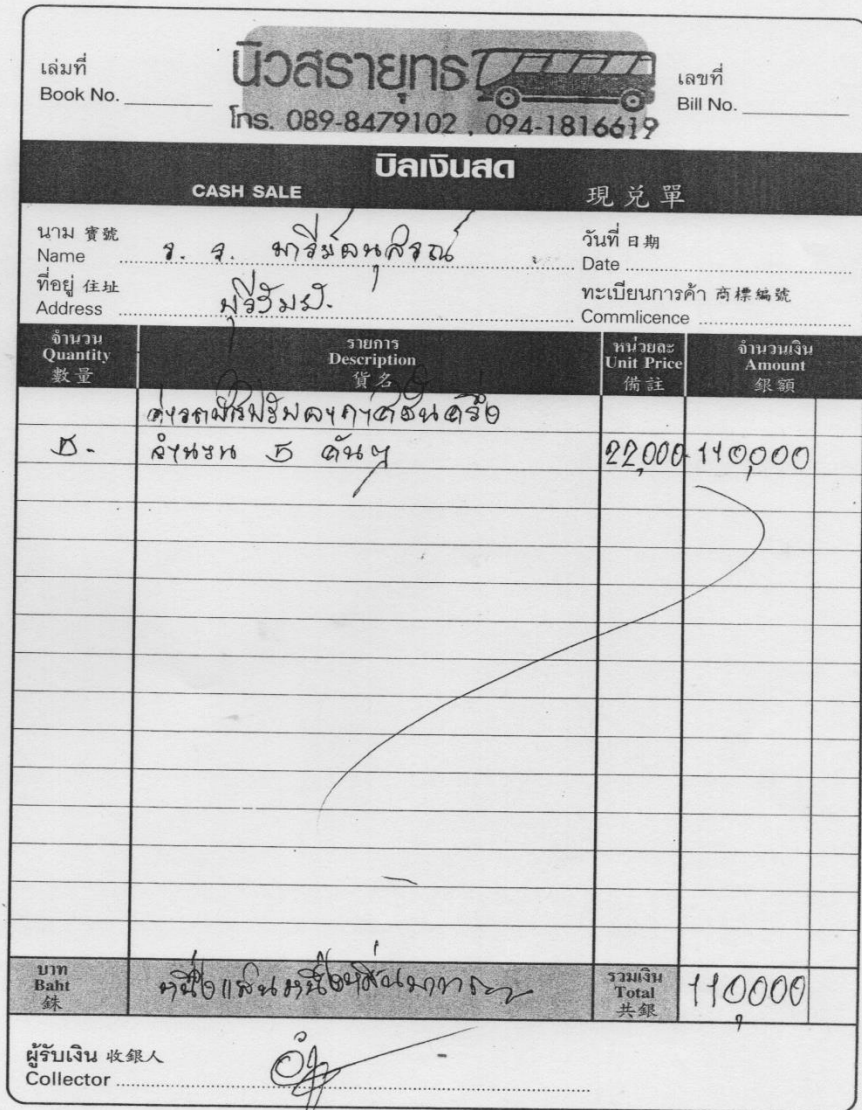 เล่มที่
Book No.
นิวสรายุทธ
โทร. 089-8479102 , 094-1816619
เลขที่
Bill No.
บิลเงินสด
CASH SALE 現兌單
นาม 寶號
Name ร. ร. มารีย์อนุสรณ์
วันที่ 日期
Date
ที่อยู่ 住址
Address บุรีรัมย์.
ทะเบียนการค้า 商標編號
Commlicence
จำนวน
Quantity
數量
รายการ
Description
貨名
หน่วยละ
Unit Price
備註
จำนวนเงิน
Amount
銀額
5. จำนวน 5 คันๆ 22,000 110,000
บาท
Baht
銖
หนึ่งแสนหนึ่งหมื่นบาท
รวมเงิน
Total
共銀
110,000
ผู้รับเงิน 收銀人
Collector